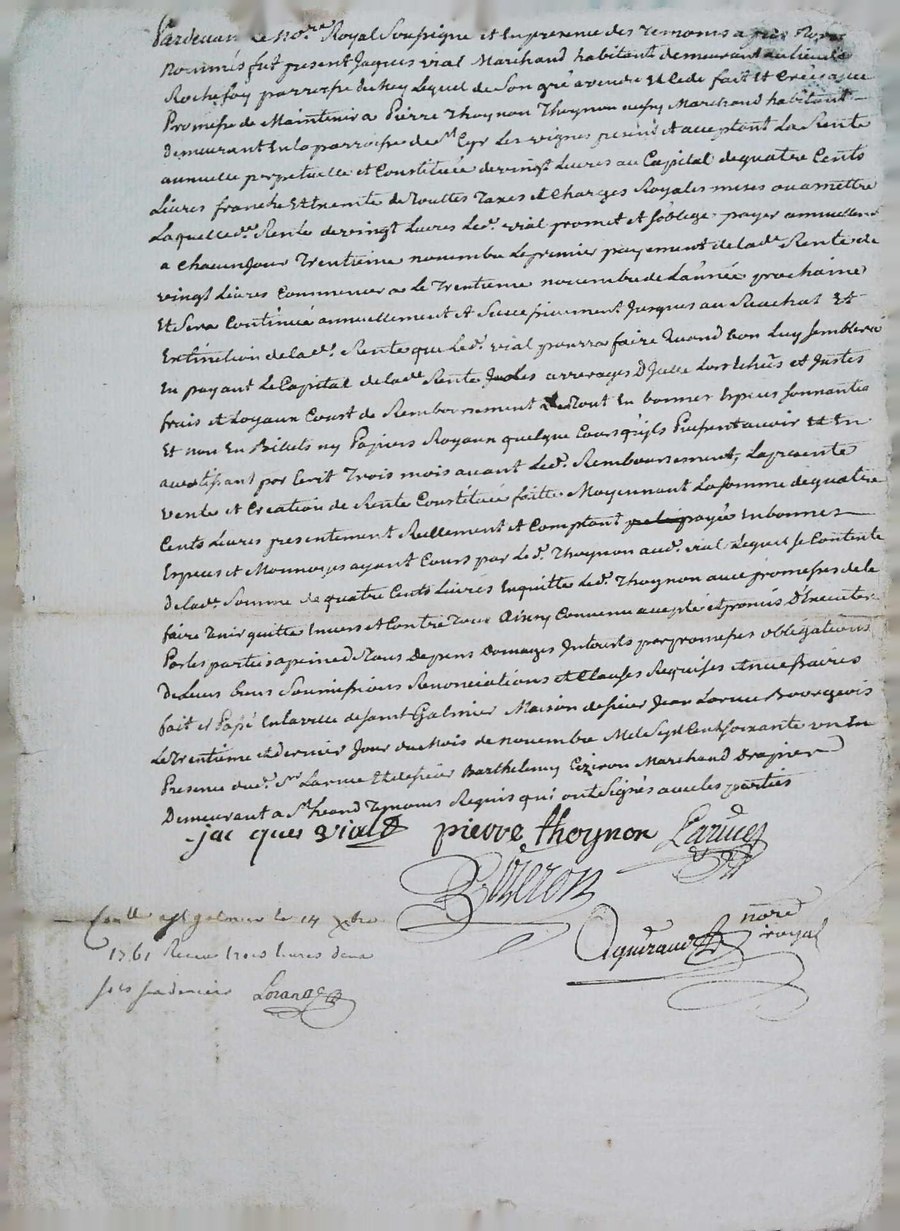 Pardevant Le no.re Royal Soussigné et En presence des Temoins apres
nommés fut present Jaques vial Marchand habitant demeurant au lieu de
Rochefoy parroisse du Rey Lequel de Son gré a vendu et Cede fait et Crée avec
Promesse de Maintenir a Pierre Thoynon Marchand habitant
demeurant En la parroisse de S.t Cyr Les vignes present et acceptant La Rente
annuelle perpetuelle et Constituée de vingt Livres au Capital de quatre Cents
Livres franche Et de Touttes Taxes et Charges Royales mises ou a mettre
Laquelle d.e Rente de vingt Livres Led.t vial promet et s'oblege payer annuellem.t
a chacun Jour Trentieme novembre Le premier payement de lad.e Rente de
vingt Livres Commencera Le Trentieme novembre de L'année prochaine
Et Sera Continué annuellement et Successivement Jusques au Rachat Et
Extinction de lad.e Rente que Led.t vial pourra faire Quand bon Luy semblera
En payant Le Capital de lad.e Rente Les arrerages D'Icelle Lors Echûs et Justes
frais et Loyaux Cout de Remboursement Le Tout En bonnes Especes sonnantes
Et non En Billets ny Papiers Royaux quelque Cours qu'ils Puissent avoir Et En
avertissant par Ecrit Trois mois avant Led.t Remboursement, La presente
vente et Creation de Rente Constituée faitte Moyennant La somme de quatre
Cents Livres presentement Reellement et Comptant payée En bonnes
Especes et Monnoyes ayant Cours par Led.t Thoynon aud.t vial Lequel Se Contente
De lad.e Somme de quatre Cents Livres En quitte Led.t Thoynon avec promesses de le
faire Tenir quitte Envers et Contre Tous Ainsy Convenu accepté et promis D'Executer
Par les parties a peine de Tous Depens Domages Interests par promesses obligations
De Leurs biens Soumissions Renonciations et Clauses Requises et necessaires
fait et Passé En la ville de saint Galmier Maison de sieur Jean Larue Bourgeois
Le Trentieme et dernier Jour du Mois de novembre Mil Sept Cent soixante un En
Presence dud.t S.r Larue Et de sieur Barthelemy Eziron Marchand Drapier
Demeurant a S.t Temoins Requis qui ont Signés avec les parties
jac ques vial pierre thoynon
not.re
royal
a s.t galmier le 14 xbre
1761 Receu trois livres deux
sols six deniers